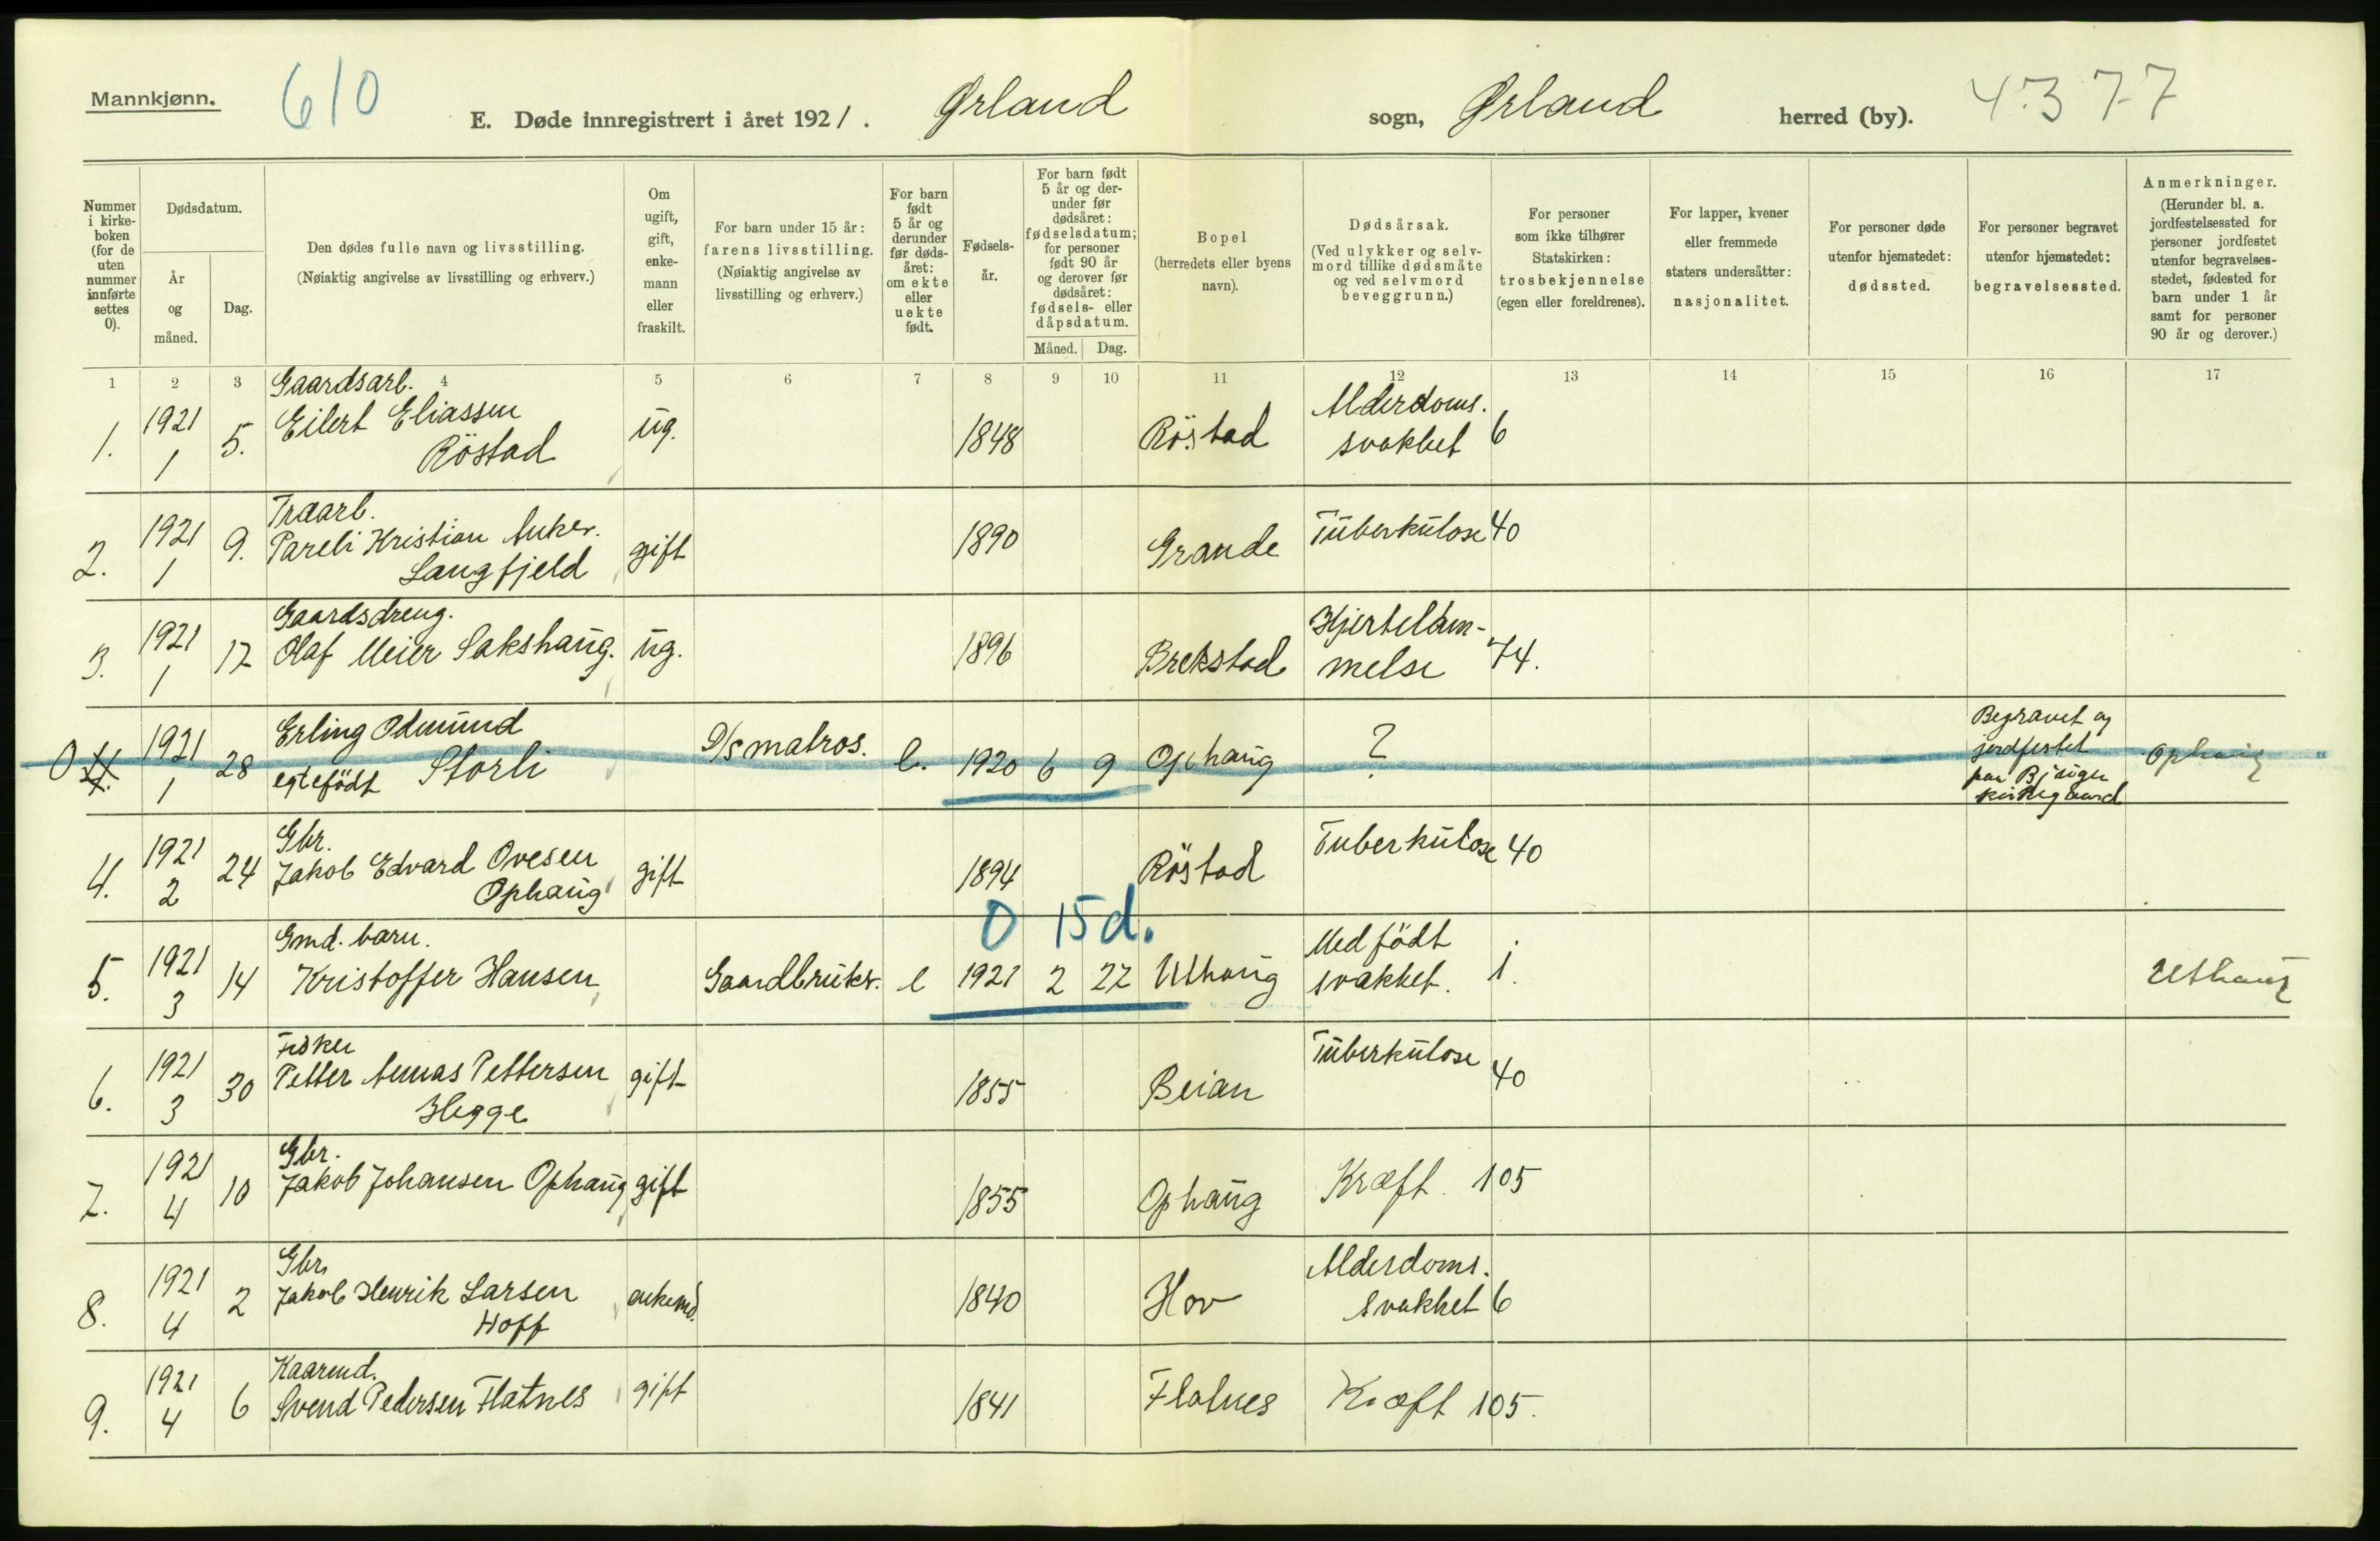 Mannkjønn.
610
E. Døde innregistrert i året 1921. Ørland sogn, Ørland herred (by). 4377
Nummer i kirke- boken (for de uten nummer innførte settes 0).
Dødsdatum.
År og måned.
Dag.
Den dødes fulle navn og livsstilling.
(Nøiaktig angivelse av livsstilling og erhverv.)
Om ugift, gift, enke- mann eller fraskilt.
For barn under 15 år: farens livsstilling.
(Nøiaktig angivelse av livsstilling og erhverv.)
For barn født 5 år og derunder før døds- året: om ekte eller uekte født.
Fødsels- år.
For barn født 5 år og der- under før dødsåret: fødselsdatum; for personer født 90 år og derover før dødsåret: fødsels- eller dåpsdatum.
Måned. Dag.
Bopel
(herredets eller byens navn).
Dødsårsak.
(Ved ulykker og selv- mord tillike dødsmåte og ved selvmord beveggrunn.)
For personer som ikke tilhører Statskirken: trosbekjennelse (egen eller foreldrenes).
For lapper, kvener eller fremmede staters undersåtter: nasjonalitet.
For personer døde utenfor hjemstedet: dødssted.
For personer begravet utenfor hjemstedet: begravelsessted.
Anmerkninger.
(Herunder bl. a. jordfestelsessted for personer jordfestet utenfor begravelses- stedet, fødested for barn under 1 år samt for personer 90 år og derover.)
1 2 3 4 5 6 7 8 9 10 11 12 13 14 15 16 17
1. 1921 1 5. Gaardsarb. Eilert Eliassen Röstad ug. 1848 Röstad Alderdoms. svakhet 6
2. 1921 1 9. Traarb. Pareli Kristian Anker. Langfjeld gift 1890 Grande Tuberkulose 40
3. 1921 1 17 Gaardsdreng. Olaf Meier Sakshaug. ug. 1896 Brekstad Hjertelam- melse 74.
0 4. 1921 1 28 Erling Odmund egtefödt Storli D/S matros. e. 1920 6 9 Ophaug ? Begravet og jordfestet paa Bjugn kirkegaard Ophaug
4. 1921 2 24 Gbr. Jakob Edvard Ovesen Ophaug gift 1894 Röstad Tuberkulose 40
0 15 d.
5. 1921 3 14 Gmd. barn. Kristoffer Hansen Gaardbruker. e 1921 2 27 Uthaug Medfödt svakhet. 1.
Uthaug
6. 1921 3 30 Fisker Petter Annas Pettersen Hegge gift 1855 Beian Tuberkulose 40
7. 1921 4 10 Gbr. Jakob Johansen Ophaug gift 1855 Ophaug Kræft. 105
8. 1921 4 2 Gbr. Jakob Henrik Larsen Hoff enkemd. 1840 Hov Alderdoms. svakhet 6
9. 1921 4 6 Kaarmd. Svend Pedersen Flatnes gift 1841 Flatnes Kræft 105.